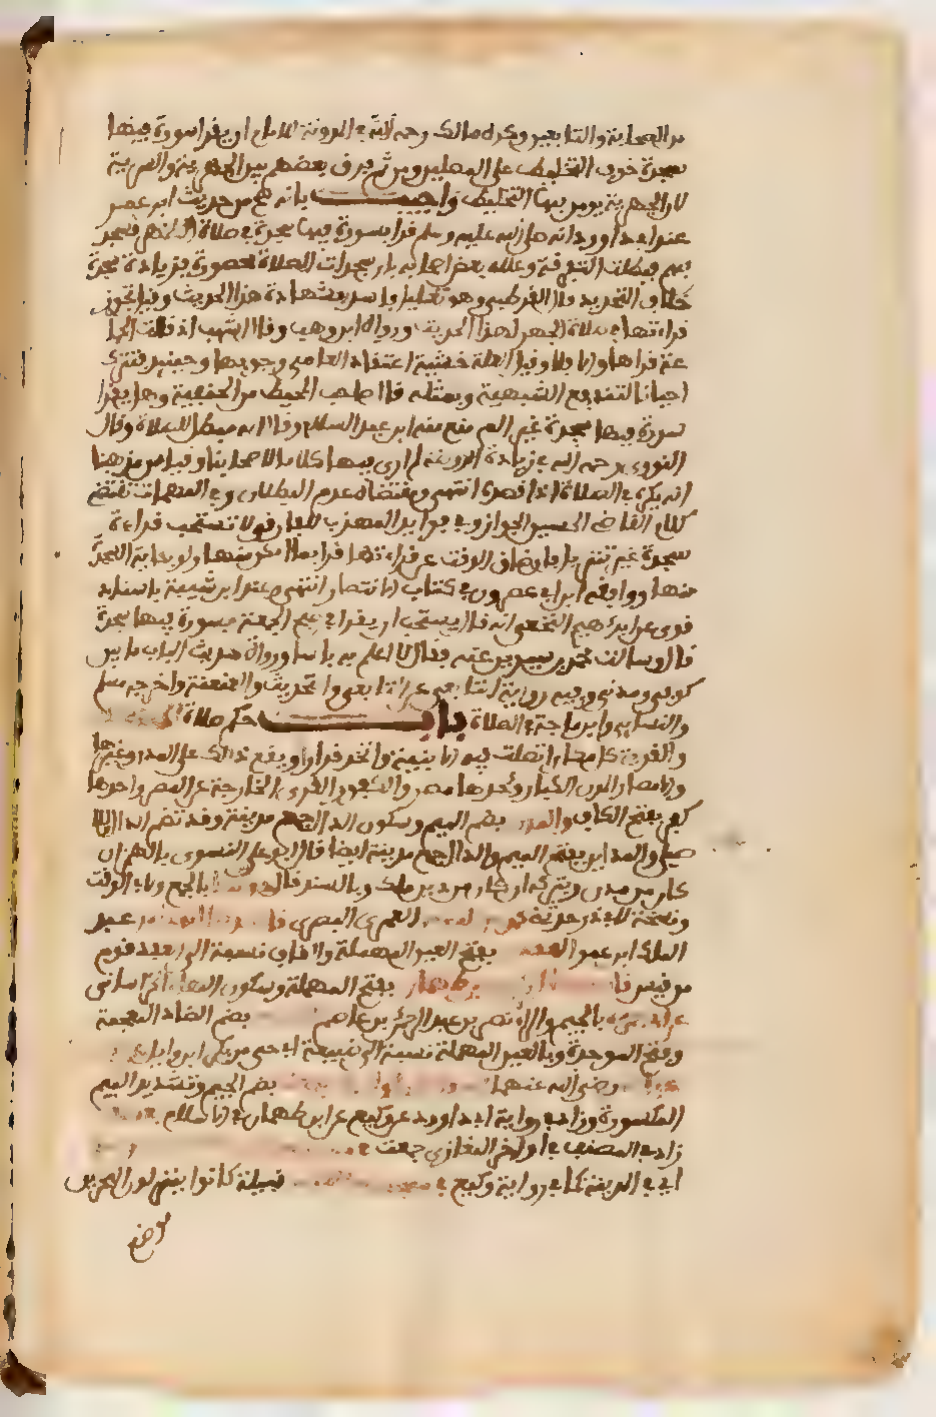 من الصحابة والتابعين وكره مالك رحمه الله في المدونة للامام ان يقرا سورة فيها
سجدة خوف التخليط على المصلين ومن ثم فرق بعضهم بين الجهرية والسرية
لان الجهرية يومن بها التخليط واجيب بانه صح من حديث ابن عمر
عند ابي داوود انه صلى الله عليه وسلم قرا بسورة فيها سجدة في صلاة الظهر فسجد
بهم فبطلت التفرقة وعلله بعض اصحابه بان سجدات الصلاة محصورة بزيادة سجدة
خلاف التحديد قال القرطبي وهو تعليل فاسد بشهادة هذا الحديث وقيل تجوز
قراءتها في صلاة الجهر لهذا الحديث ورواه ابن وهب وقال اشهب اذ قلت الجما
عة قراها والا فلا وقيل العلة خشية اعتقاد العامي وجوبها وحينئذ فتترك
احيانا لتندفع الشبهة وبمثله قال صاحب المحيط من الحنفية وهل يقرا
سورة فيها سجدة غير الم منع منه ابن عبد السلام وقال انه مبطل للصلاة وقال
النووي رحمه الله في زيادة الروضة لم ارى فيها كلاما لاصحابنا وقياس مذهبنا
انه يكره في الصلاة اذا قصده انتهى ومقتضاه عدم البطلان وفي المهمات مقتضى
كلام القاضي الحسين الجواز وفي فوايد المهذب للفارقي لا تستحب قراءة
سجدة غير تنزيل فان ضاق الوقت عن قراءتها قرا بما امكن منها ولو بءاية السجدة
منها ووافقه ابن ابي عصرون في كتاب الانتصار انتهى وعند ابن ابي شيبة باسناد
قوي عن ابراهيم النخعي انه قال يستحب ان يقرا في صبح الجمعة بسورة فيها سجدة
قال وسالت محمد بن سيرين عنه فقال لا اعلم به باسا ورواة حديث الباب ما بين
كوفي ومدني وفيه رواية التابعي عن التابعي والتحديث والعنعنة واخرجه مسلم
والنسائي وابن ماجة في الصلاة باب حكم صلاة
والقرية كل مكان اتصلت فيه الابنية واتخذ قرارا ويقع ذلك على المدن وغيرها
والامصار المدن الكبار واحدها مصر والكفور القرى الخارجة عن المصر واحدها
كفر بفتح الكاف والمدن بضم الميم وسكون الدال جمع مدينة وقد تضم الدال
بفتح الميم والدال جمع مدينة ايضا قال ابو علي الفسوي بالهمز ان
كان من مدن وبتركه ان كان من دين ملك وبالسند قال بالجمع ولابي الوقت
ونسخة لابي ذر حدثني العنزي البصري قال عبد
الملك ابن عمرو العقدي بفتح العين المهملة والقاف نسبة الى العقد قوم
من قيس قال بن طهمان بفتح المهملة وسكون الهاء الخراساني
عن بالجيم والراء نصر بن عبد الرحمن بن عاصم بضم الضاد المعجمة
وفتح الموحدة وبالعين المهملة نسبة الى ضبيعة ابي حي من بكر ابن وايل
رضي الله عنهما بضم الجيم وتشديد الميم
المكسورة وزاد في رواية ابي داوود عن وكيع عن ابن طهمان في الاسلام
زاد في المصنف في اواخر المغازي جمعت
اي في المدينة كما في رواية وكيع في قبيلة كانوا ينزلون البحرين
موضع